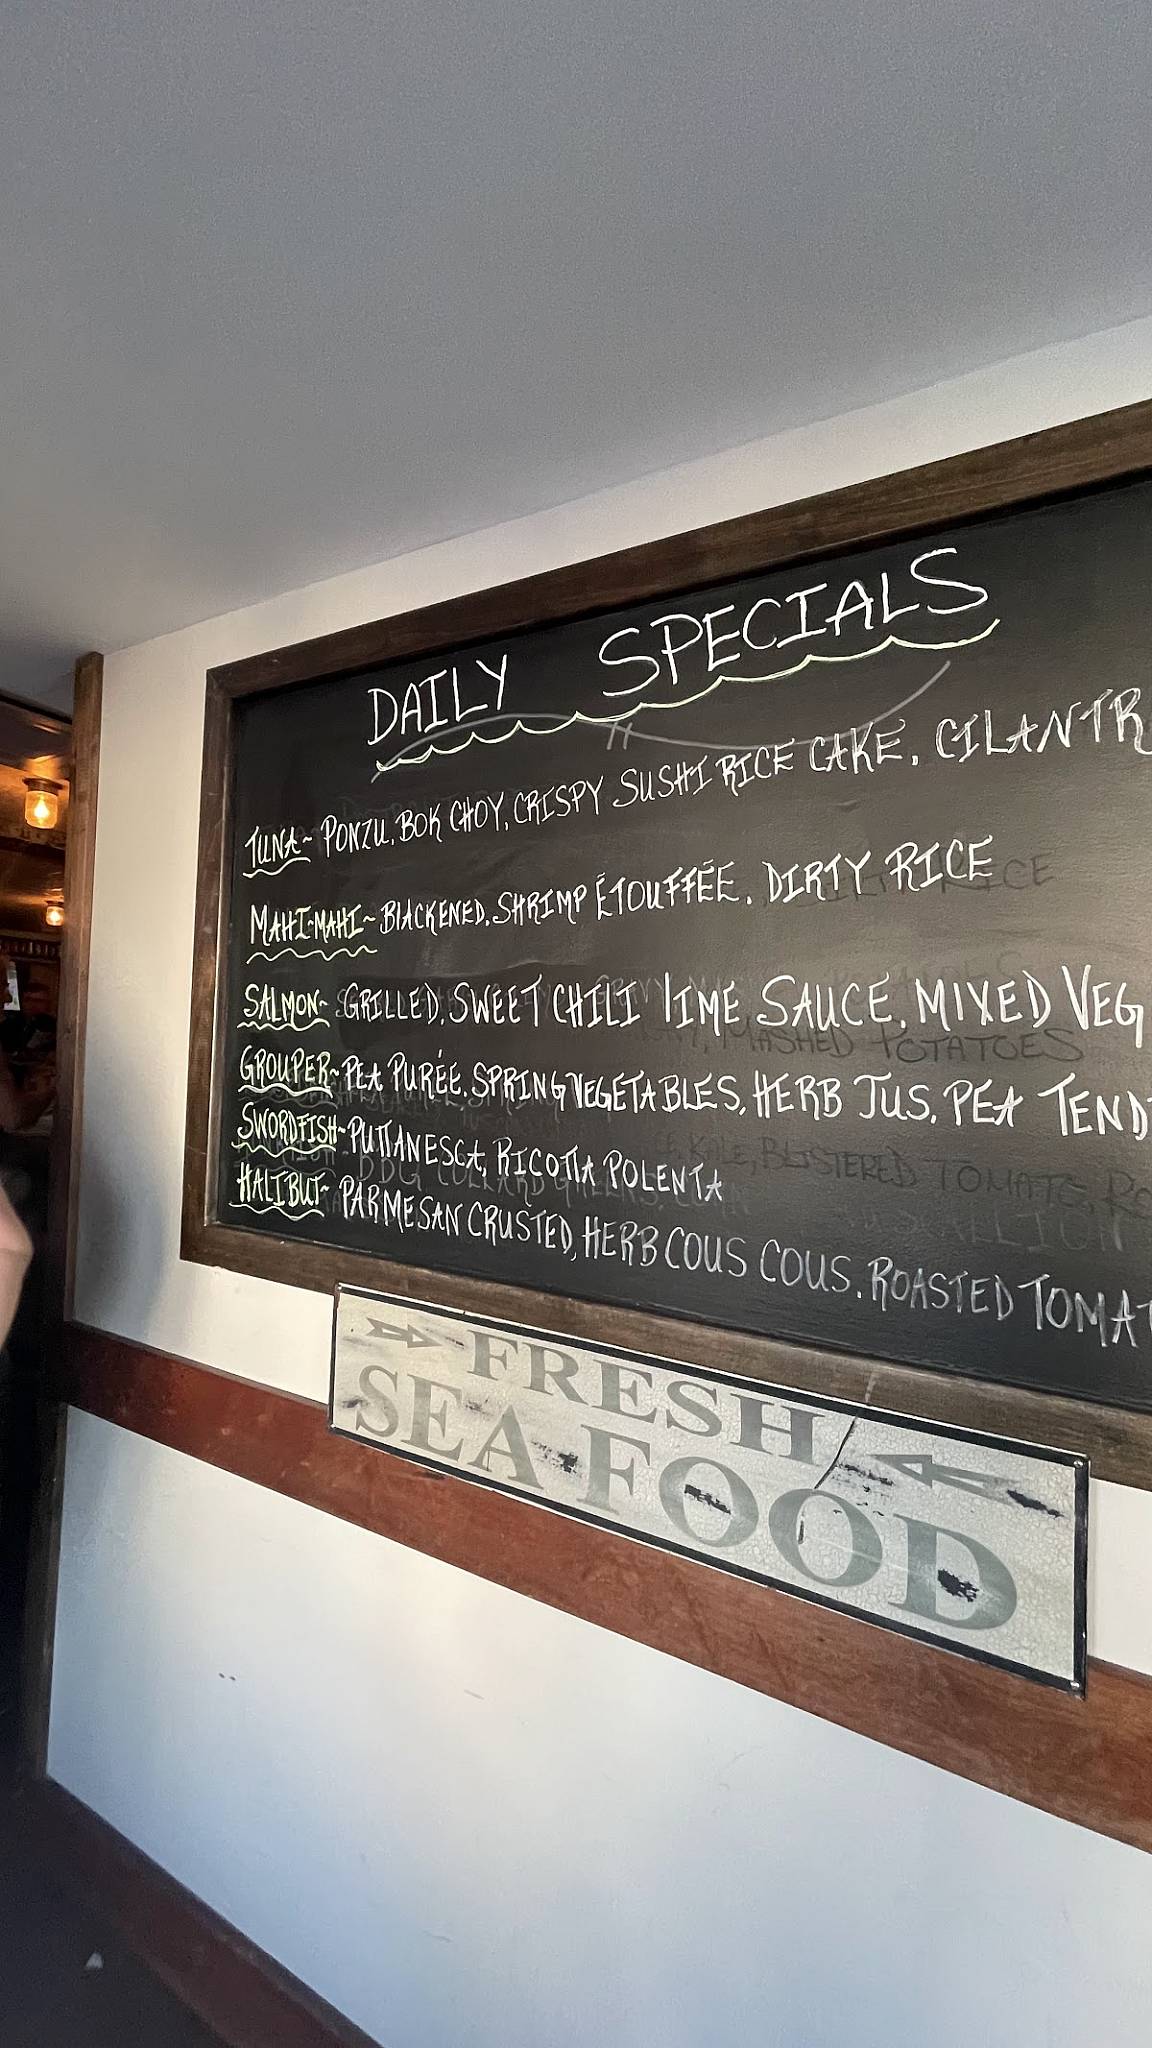 DAILY SPECIALS
TUNA~ PONZU, BOK CHOY, CRISPY SUSHI RICE CAKE, CILANTR
MAHI-MAHI~ BLACKENED, SHRIMP ÉTOUFFÉE, DIRTY RICE
SALMON~ GRILLED, SWEET CHILI LIME SAUCE, MIXED VEG
GROUPER~ PEA PURÉE, SPRING VEGETABLES, HERB JUS, PEA TEND
SWORDFISH~ PUTTANESCA, RICOTTA POLENTA
HALIBUT~ PARMESAN CRUSTED, HERB COUS COUS, ROASTED TOMAT
FRESH
SEAFOOD